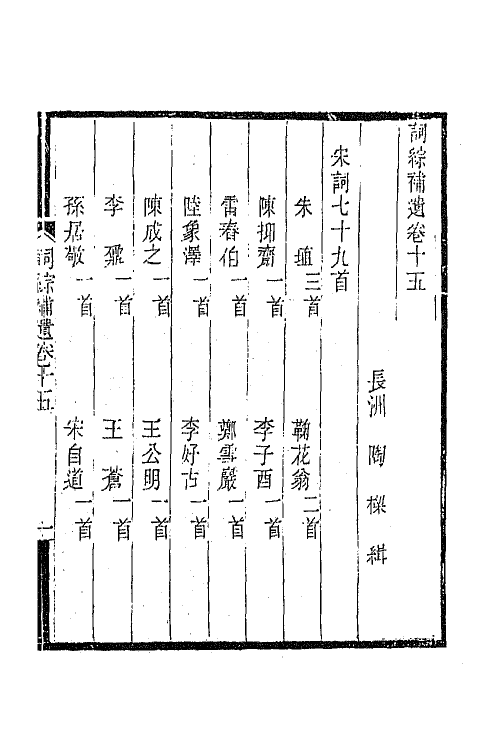 詞綜補遺卷十五
長洲 陶樑 緝
宋詞七十九首
朱𡎺三首 鞠花翁二首
陳抑齋一首 李子酉一首
雷春伯一首 鄭雲巖一首
陸象澤一首 李好古一首
陳成之一首 王公明一首
李 鼐一首 王 蒼一首
孫居敬一首 宋自道一首
詞綜補遺卷十五 一